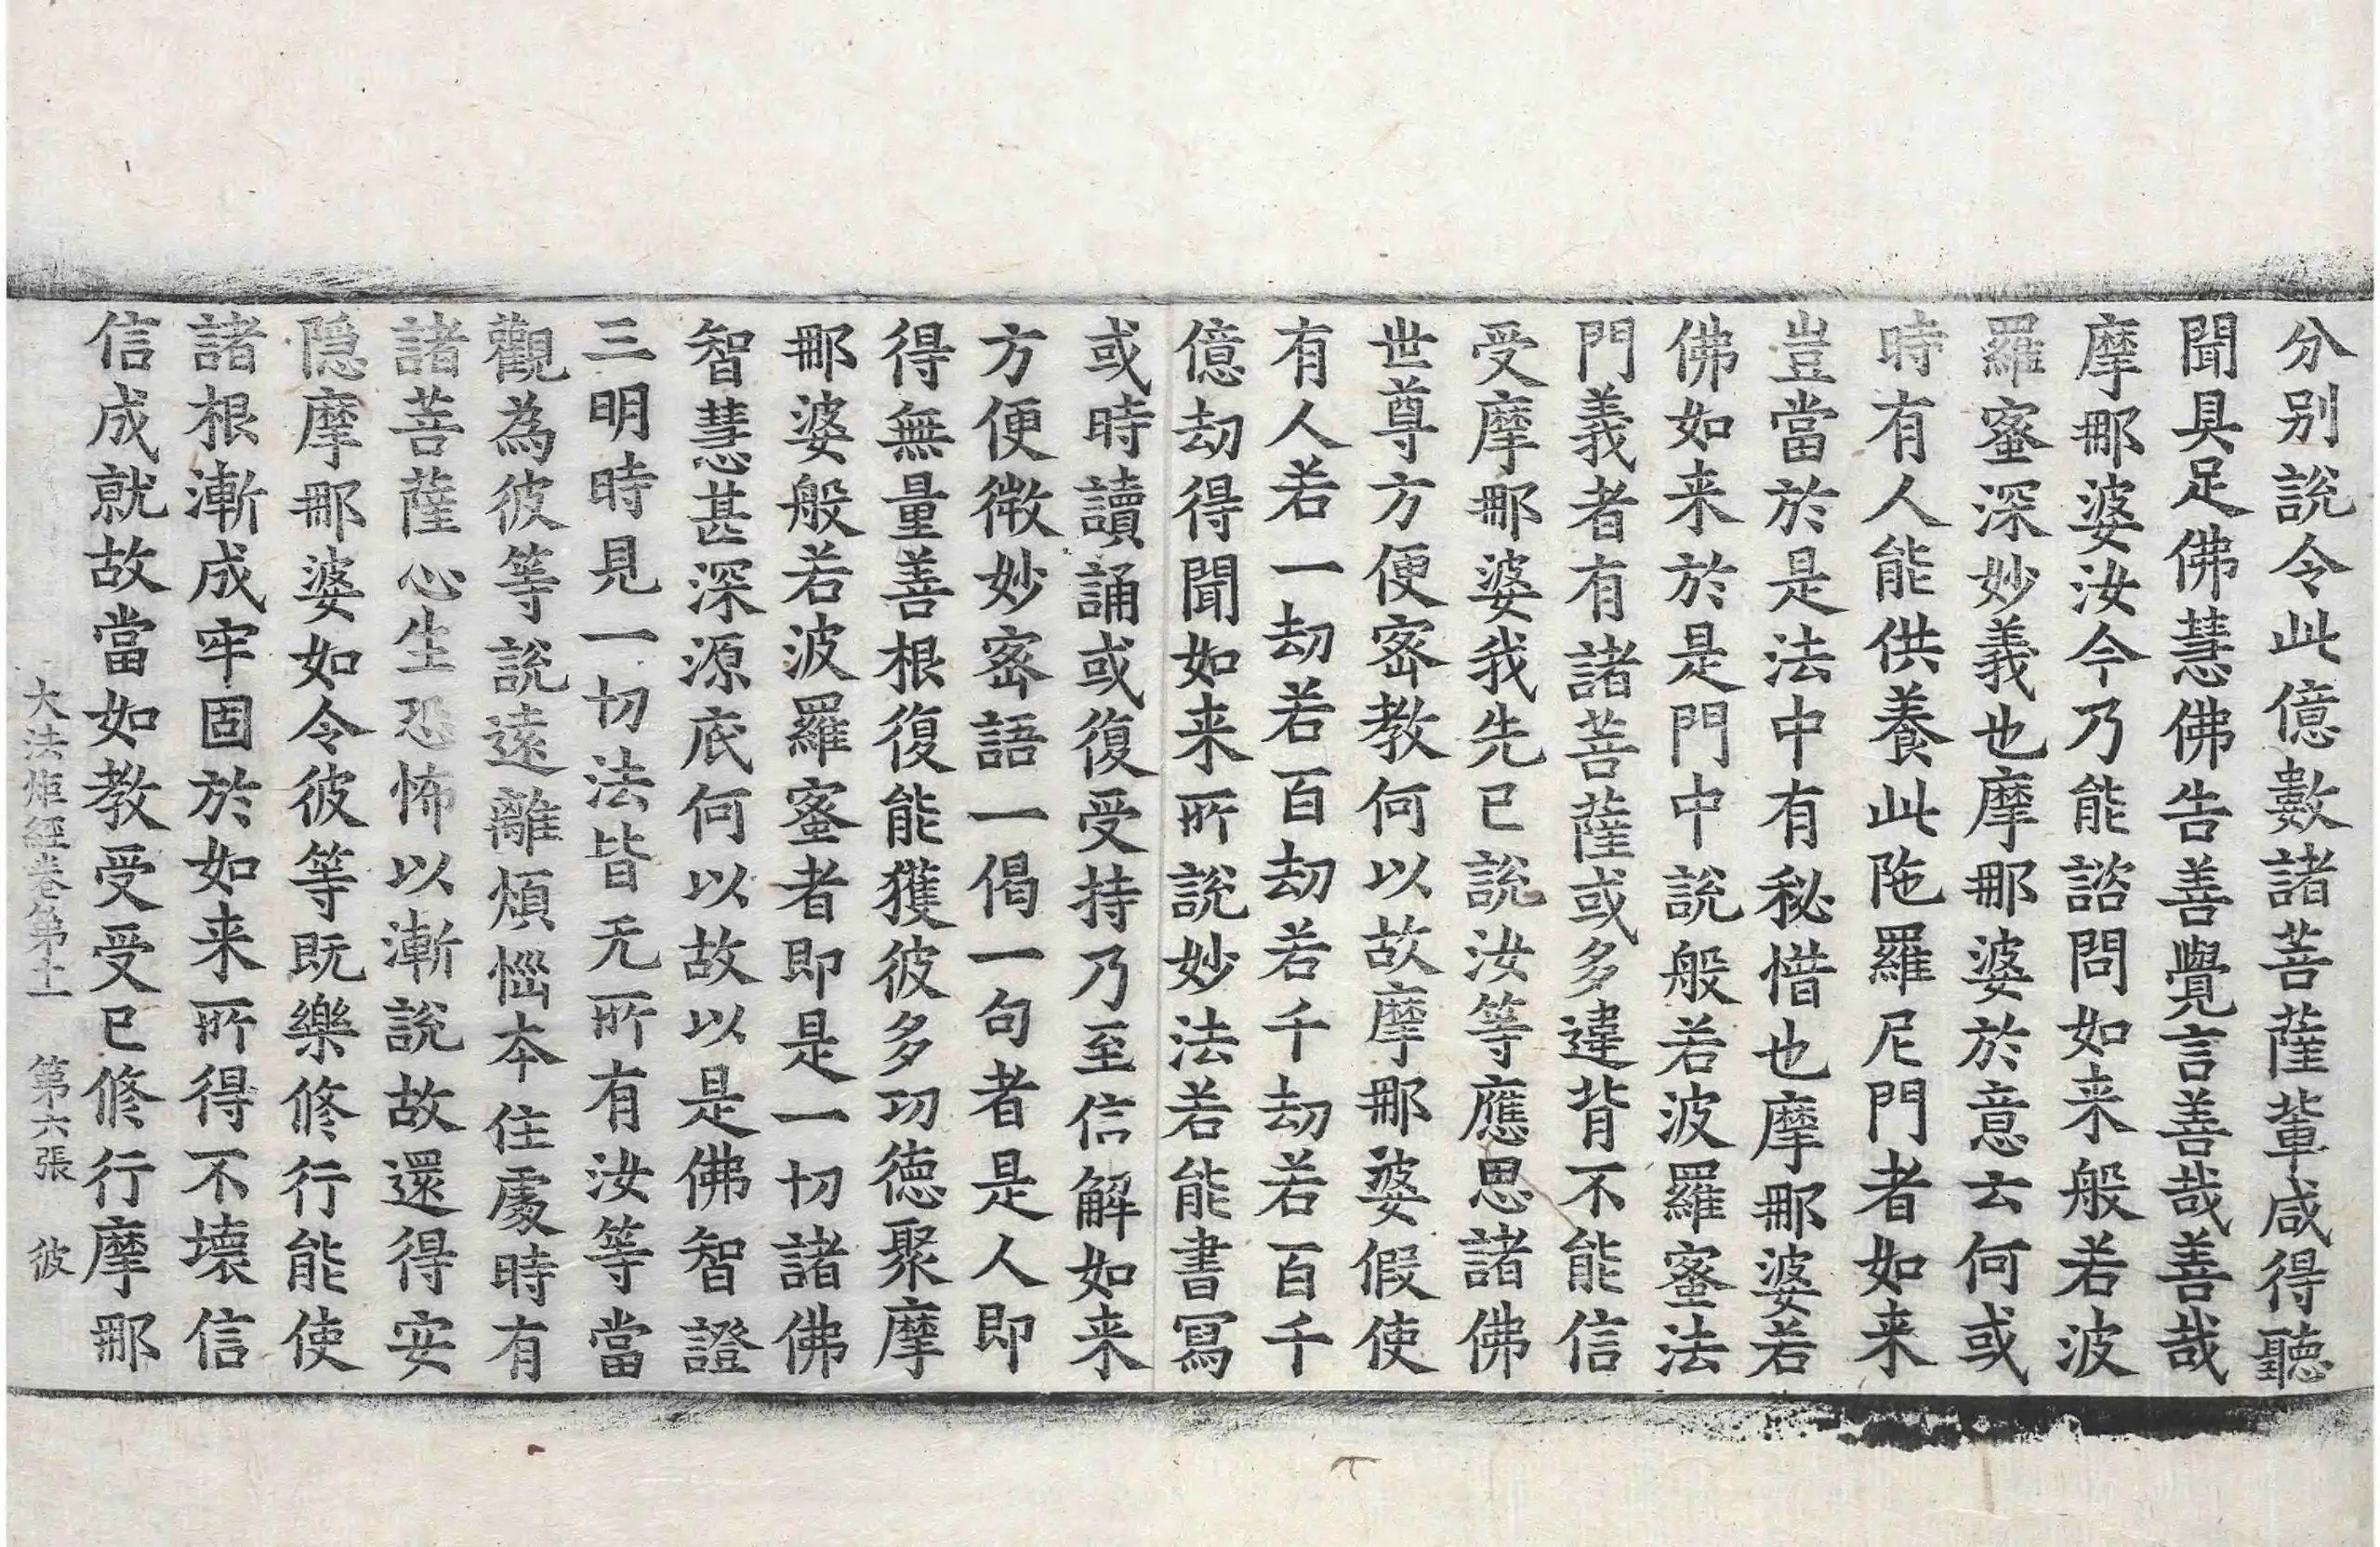 分别說令此億數諸菩薩輩咸得聽
聞具足佛慧佛告善覺言善哉善哉
摩那婆汝今乃能諮問如来般若波
羅蜜深妙義也摩那婆於意云何或
時有人能供養此陁羅尼門者如来
豈當於是法中有秘惜也摩那婆若
佛如来於是門中說般若波羅蜜法
門義者有諸菩薩或多違背不能信
受摩那婆我先已說汝等應思諸佛
世尊方便宻教何以故摩那婆假使
有人若一劫若百劫若千劫若百千
億劫得聞如来所說妙法若能書寫
或時讀誦或復受持乃至信解如来
方便微妙宻語一偈一句者是人即
得無量善根復能獲彼多功徳聚摩
那婆般若波羅蜜者即是一切諸佛
智慧甚深源底何以故以是佛智證
三明時見一切法皆无所有汝等當
觀為彼等說遠離煩惱本住處時有
諸菩薩心生恐怖以漸說故還得安
隱摩那婆如令彼等既樂修行能使
諸根漸成牢固於如来所得不壞信
信成就故當如教受受已修行摩那
大法炬經卷第十一 第六張 彼